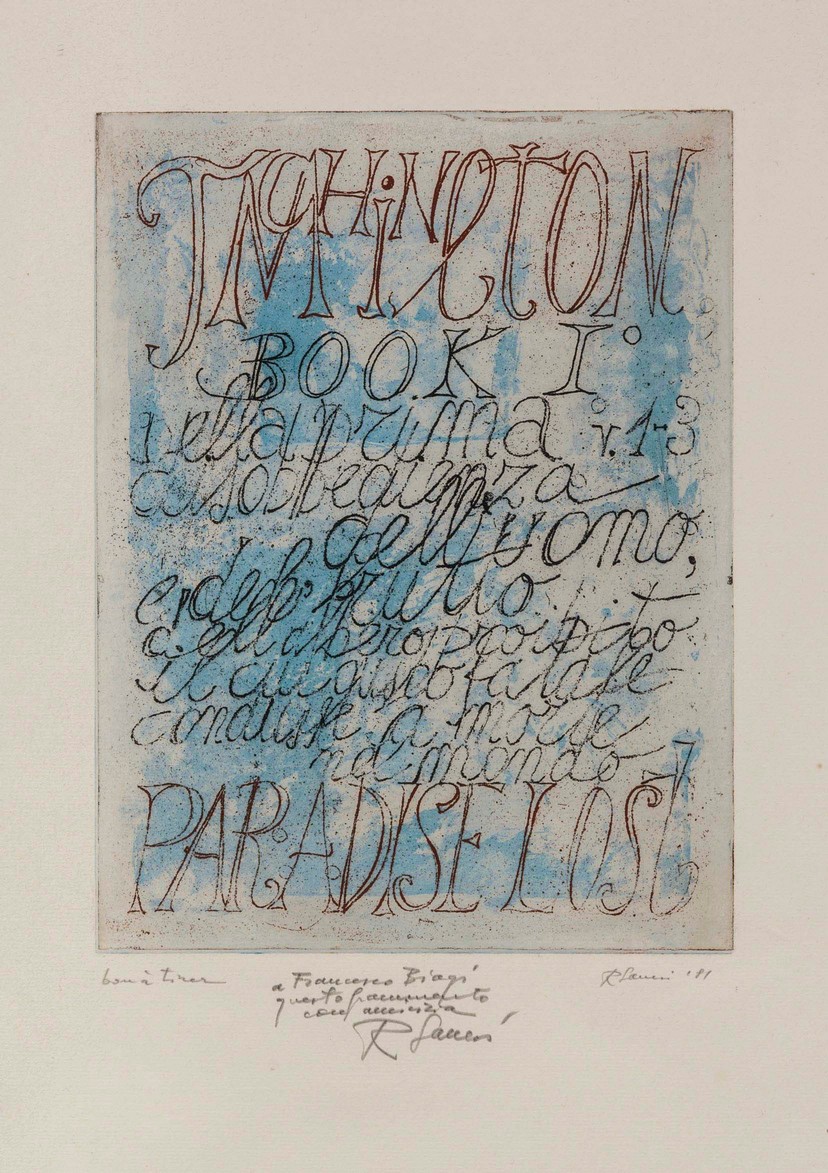 JOHN MiLTON
BOOK I°
della prima v. 1-3
disobbedienza
dell'uomo,
e del frutto
dell'albero proibito
il cui gusto fatale
condusse la morte
nel mondo
PARADISE LOST
bon à tirer
a Francesco Biagi
questo frammento
con amicizia
R Sanesi
R Sanesi '81